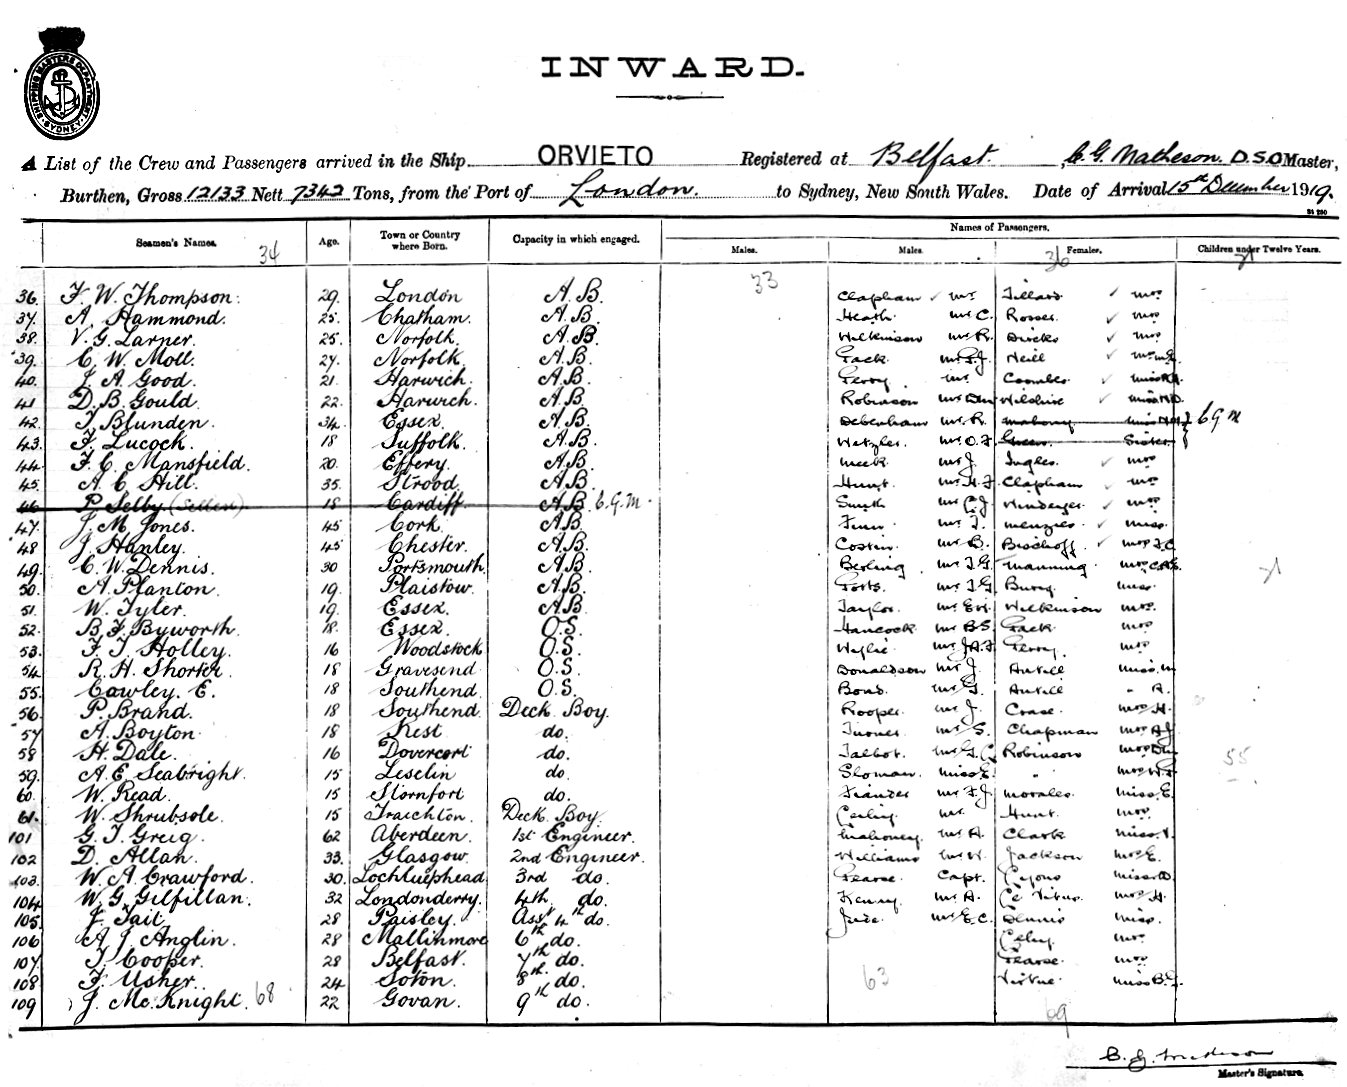 SHIPPING MASTERS DEPARTMENT
SYDNEY
INWARD.
A List of the Crew and Passengers arrived in the Ship ORVIETO Registered at Belfast. C. G. Matheson. D.S.O Master,
Burthen, Gross 12133 Nett 7342 Tons, from the Port of London. to Sydney, New South Wales. Date of Arrival 15th December 1919.
Names of Passengers.
Seamen's Names. Age. Town or Country where Born. Capacity in which engaged. Males. Males. Females. Children under Twelve Years.
34 33 36
36. F. W. Thompson. 29. London A.B. Clapham Mr Tillard Mrs
37. A. Hammond. 25. Chatham. A.B. Heath Mr C. Rosser Mrs
38. V. G. Larner. 25. Norfolk. A.B. Wilkinson Mr R. Dircks Mrs
39. C. W. Moll. 27. Norfolk A.B. Gack Neill
40. J. A. Good. 21. Harwich. A.B. Gerry Mr Coombes Miss
41. D. B. Gould. 22. Harwich. A.B. Robinson Mr Wildsire Miss
42. T. Blunden. 34. Essex. A.B. Debenham Mr R. Mahony Miss C G M
43. F. Lucock. 18 Suffolk. A.B. Wetzler Mr O. F Green Sister
44. F. C. Mansfield. 20. Effery. A.B. Meek Mr J. Ingles Mrs
45. A. C. Hill. 35. Strood A.B. Hunt Mr H. F Clapham Mrs
46 P. Selby (Sellen) 18 Cardiff A.B. C.G.M. Smith Mr Mrs
47. J. M. Jones. 45 Cork. A.B. Finn Mr T. Menzies Miss
48 J. Hanley. 45 Chester. A.B. Costin Mr B. Bischoff Mrs F.C.
49. C. W. Dennis. 30 Portsmouth. A.B. Berling Mr T. G. Manning Mrs
50. A. Planton. 19. Plaistow. A.B. Potts Mr T. G Burry Miss
51. W. Tyler. 19. Essex A.B. Taylor Mr Wilkinson Mrs
52. B. F. Byworth. 18. Essex. O.S. Hancock Mr B.S. Gack Mrs
53. F. T. Holley. 16 Woodstock O.S. Wylie Mr J.A.F Gerry Mrs
54. R. H. Shorter. 18 Gravesend O.S. Donaldson Mr J. Antill Miss M
55. Cawley. E. 18 Southend O.S. Bond Mr G. Antill " A.
56. P. Brand. 18 Southend Deck Boy. Rooper Mr J. Coase Mrs H.
57 A. Boyton 18 Kest do. Turner Mr S. Chapman Mrs A.J
58 H. Dale. 16 Dovercort do. Talbot Mr G. C Robinson Mrs 55
59. A. E. Seabright. 15 Leselin do. Sloman Miss E. " Mrs
60. W. Read. 15 Stornfort do. Mr F. J Morales Miss E.
61. W. Shrubsole. 15 Traichton. Deck Boy. Mr Hunt Mrs
101 G. T. Greig 62 Aberdeen. 1st Engineer. Mahoney Mr A. Clark Miss
102 D. Allan 33. Glasgow. 2nd Engineer. Williams Mr W. Jackson Mrs E.
103. W. A. Crawford. 30. Lochluephead 3rd do. Pearse Capt. Lyons Miss
104. W. G. Gilfillan. 32 Londonderry. 4th do. Kenny Mr A. Mrs H.
105. J. Tait. 28 Paisley. Asst 4th do. Jude Mr E. C. Dennis Miss
106 A. J. Anglin. 28 Mallinmore 6th do. Mrs
107 T. Cooper. 28 Belfast. 7th do. Pearse Mrs
108 F. Usher. 24 Soton. 8th do. 63 Virtue Miss B. G.
109 J. Mc. Knight. 68 22 Govan. 9th do.
69
C. G. Matheson
Master's Signature.